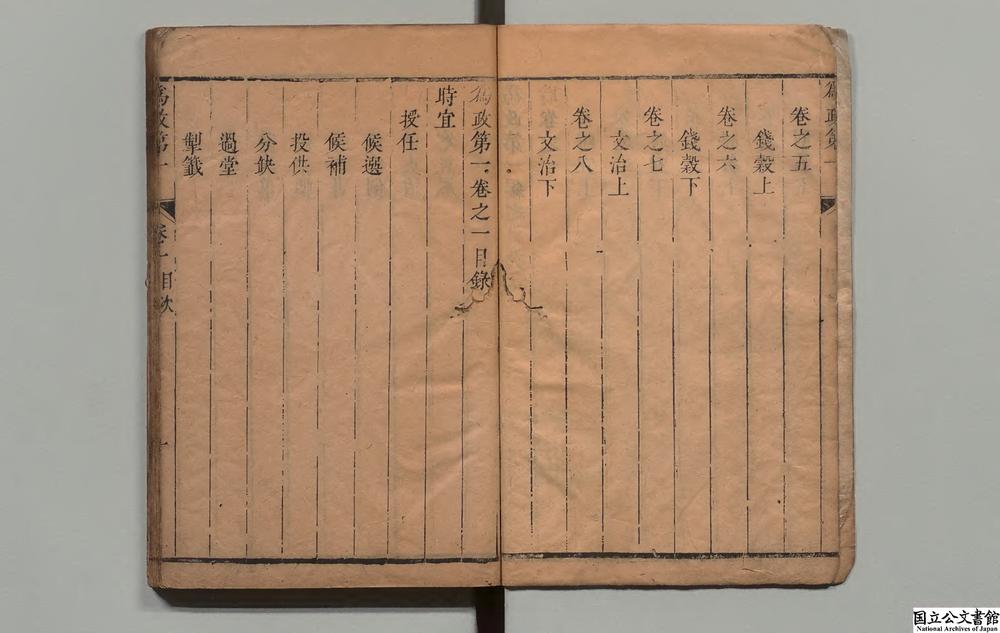 爲政第一
卷之五
錢穀上
卷之六
錢穀下
卷之七
文治上
卷之八
文治下
爲政第一卷之一目錄
時宜
授任
候選
候補
投供
分缺
過堂
掣籤
爲政第一 卷一目次 一
国立公文書館
National Archives of Japan